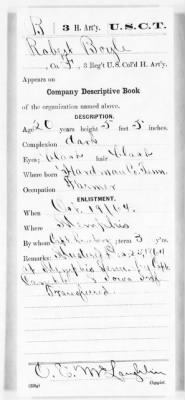 B | 3 H. Art'y. | U.S.C.T.
Robert Boyle
, Co. F, 3 Reg't U.S. Col'd H. Art'y.
Appears on
Company Descriptive Book
of the organization named above.
DESCRIPTION.
Age 20 years; height 5 feet 5 inches.
Complexion dark
Eyes black; hair black
Where born Hardman Co Tenn.
Occupation Farmer
ENLISTMENT.
When 1864.
Where Memphis
By whom Capt. ; term 3 y'rs.
Remarks: 1864
at Memphis Tenn. by Capt.
Iowa
Transferred
C. C. McLaughlin
Copyist.